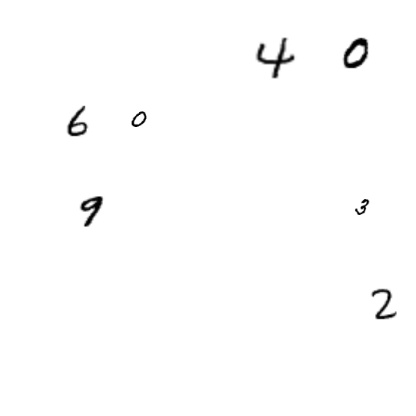 4 0
6 0
9 3
2